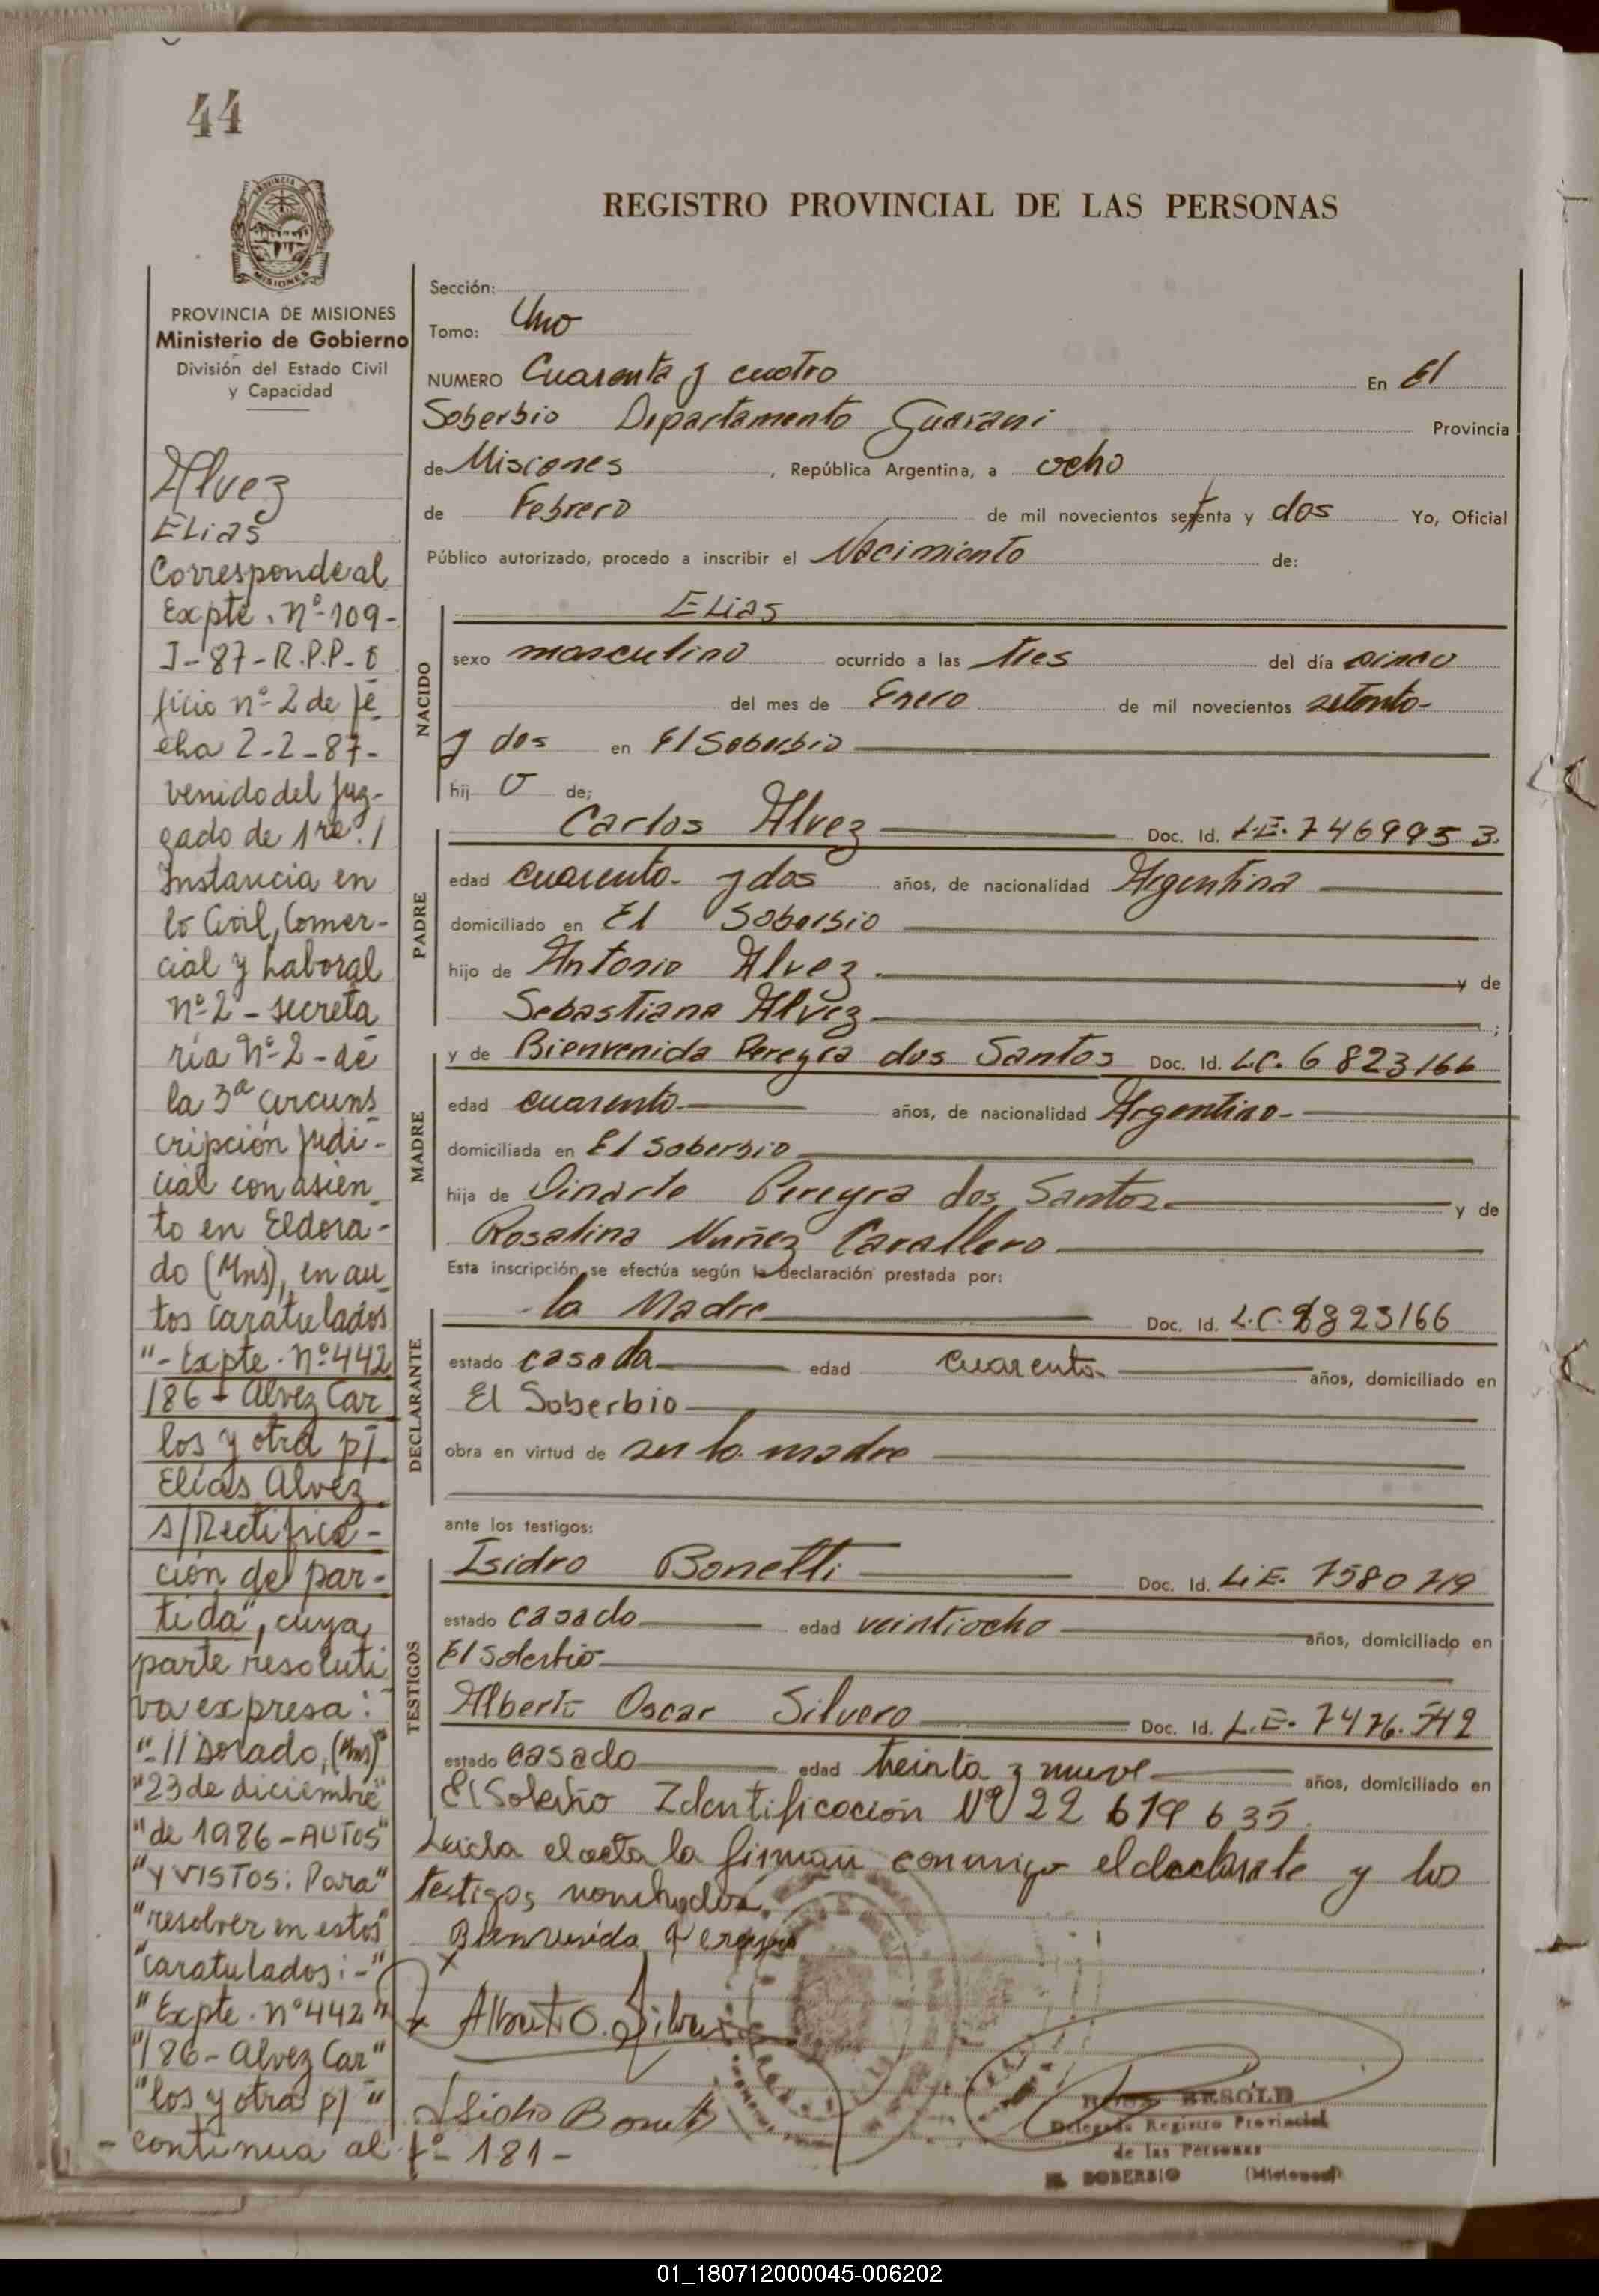 44
PROVINCIA
MISIONES
REGISTRO PROVINCIAL DE LAS PERSONAS
PROVINCIA DE MISIONES
Ministerio de Gobierno
División del Estado Civil
y Capacidad
Alvez
Elias
Corresponde al
Expte. Nº 109-
J-87-R.P.P.- O
ficio nº 2 de fe
cha 2-2-87-
venido del Juz-
gado de 1ra. /
Instancia en
lo Civil, Comer-
cial y Laboral
Nº 2 - secreta
ria Nº 2 - de
la 3ª circuns
cripción Judi-
cial con asien
to en Eldora-
do (Mns), en au
tos caratulados
"- Expte. Nº 442
/86 - Alvez Car
los y otra p/
Elías Alvez
s/Rectifica-
ción de par-
tida", cuya
parte resoluti
va expresa:
"-//Dorado, (Mns)"
"23 de diciembre"
"de 1986 - AUTOS"
"Y VISTOS: Para"
"resolver en estos"
"caratulados: -"
"Expte. nº 442"
"/86 - Alvez Car"
"los y otra p/"
- continua al fº 181 -
Sección:
Tomo: Uno
NUMERO Cuarenta y cuatro En El
Soberbio Departamento Guarani Provincia
de Misiones, República Argentina, a ocho
de Febrero de mil novecientos setenta y dos Yo, Oficial
Público autorizado, procedo a inscribir el Nacimiento de:
NACIDO
Elias
sexo masculino ocurrido a las tres del día cinco
del mes de Enero de mil novecientos setenta
y dos en El Soberbio
hij o de;
PADRE
Carlos Alvez Doc. Id. L.E. 7469953
edad cuarenta y dos años, de nacionalidad Argentina
domiciliado en El Soberbio
hijo de Antonio Alvez y de
Sebastiana Alvez ;
MADRE
y de Bienvenida Pereyra dos Santos Doc. Id. L.C. 6823166
edad cuarenta años, de nacionalidad Argentina
domiciliada en El Soberbio
hija de Dinarte Pereyra dos Santos y de
Rosalina Nuñez Cavallero
Esta inscripción se efectúa según la declaración prestada por:
DECLARANTE
la Madre Doc. Id. L.C. 6823166
estado casada edad cuarenta años, domiciliado en
El Soberbio
obra en virtud de ser la madre
ante los testigos:
TESTIGOS
Isidro Bonetti Doc. Id. L.E. 7580719
estado casado edad veintiocho años, domiciliado en
El Soberbio
Alberto Oscar Silvero Doc. Id. L.E. 7476.742
estado casado edad treinta y nueve años, domiciliado en
El Soberbio Identificación Nº 22 619 635
Leida el acta la firman conmigo el declarante y los
testigos nombrados.
Bienvenida Pereyra
Alberto O. Silvero
Isidro Bonetti
BESOLD
Delegada Registro Provincial
de las Personas
EL SOBERBIO (Misiones)
01_180712000045-006202